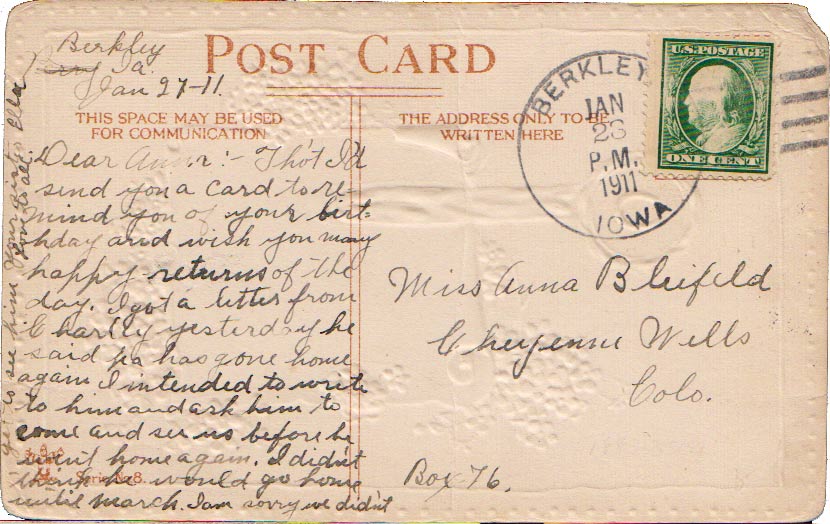 POST CARD
THIS SPACE MAY BE USED
FOR COMMUNICATION
THE ADDRESS ONLY TO BE
WRITTEN HERE
U.S. POSTAGE
ONE CENT
BERKLEY
JAN
P.M.
1911
IOWA
Berkley
Ia.
Jan 27-11.
Dear Anna:- Tho't I'd
send you a card to re-
mind you of your birt-
hday and wish you may
happy returns of the
day. I got a letter from
Charley yesterday he
said pa has gone home
again I intended to write
to him and ask him to
come and see us before he
went home again. I didn't
think he would go home
until march. I am sorry we didn't
get to see him Your sister Ella
Love to all.
Miss Anna Bleifeld
Cheyenne Wells
Colo.
Box 76.
Series No 8.